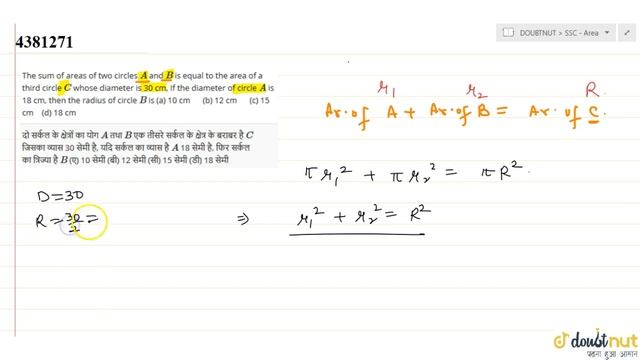 DOUBTNUT > SSC - Area
4381271
The sum of areas of two circles A and B is equal to the area of a
third circle C whose diameter is 30 cm. If the diameter of circle A is
18 cm, then the radius of circle B is (a) 10 cm (b) 12 cm (c) 15
cm (d) 18 cm
दो सर्कल के क्षेत्रों का योग A तथा B एक तीसरे सर्कल के क्षेत्र के बराबर है C
जिसका व्यास 30 सेमी है. यदि सर्कल का व्यास है A 18 सेमी है. फिर सर्कल
का त्रिज्या है B (ए) 10 सेमी (बी) 12 सेमी (सी) 15 सेमी (डी) 18 सेमी
r₁ r₂ R
Ar. of A + Ar. of B = Ar. of C.
πr₁² + πr₂² = πR²
D = 30
R = 30/2 =
⇒ r₁² + r₂² = R²
doubtnut
पढ़ना हुआ आसान